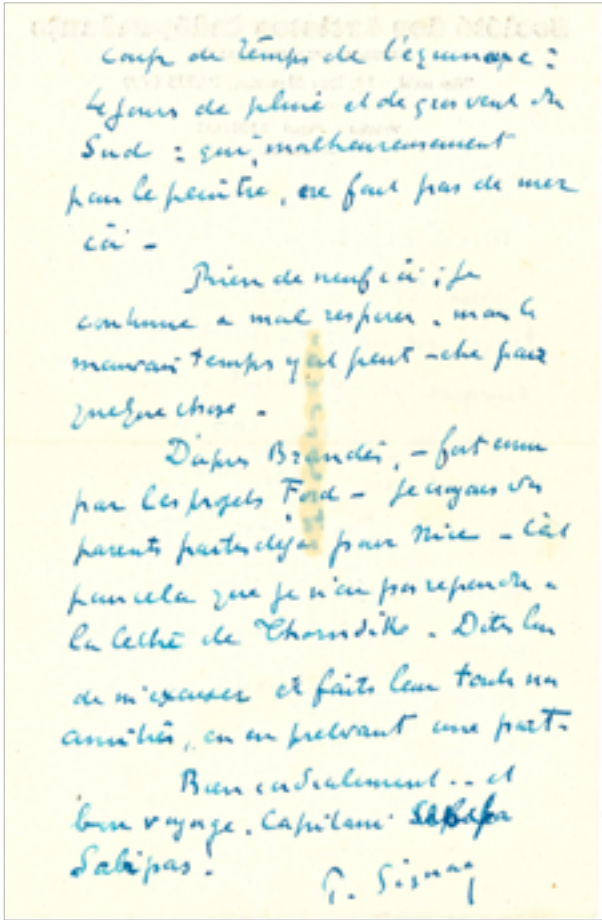 coup de temps de l'équinoxe :
4 jours de pluie et de gros vent du
Sud : qui, malheureusement
pour le peintre, ne fait pas de mer
ici -
Rien de neuf ici ; je
continue a mal respirer. mais le
mauvais temps y est peut-etre pour
quelque chose -
D'apres Brandès, - fort emu
par les projets Ford - je croyais vos
parents partis deja pour Nice - C'est
pour cela que je n'ai pas repondu a
la lettre de Thorndike - Dites lui
de m'excuser et faits leur toutes nos
amitiés, en en prelevant une part.
Bien cordialement .. et
bon voyage. Capitaine
Sabipas!
P. Signac